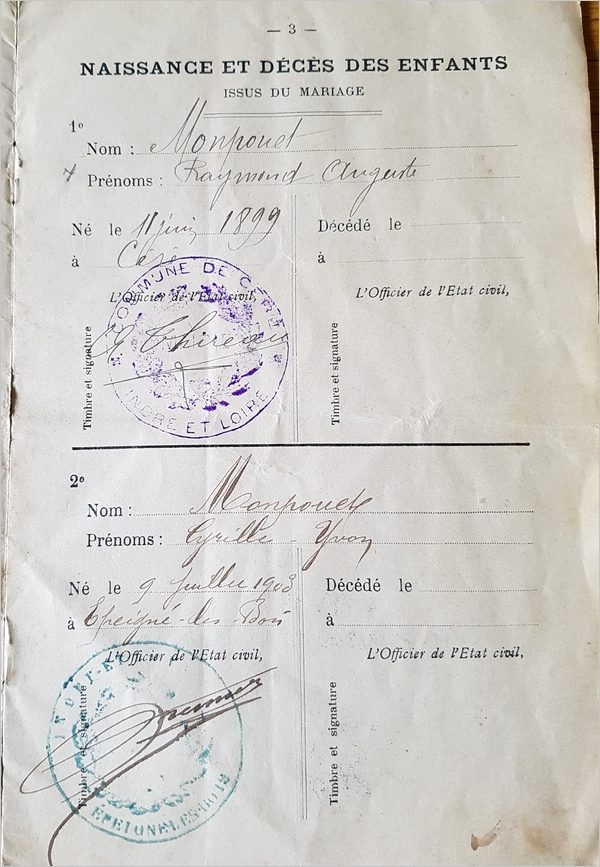 — 3 —
NAISSANCE ET DÉCÈS DES ENFANTS
ISSUS DU MARIAGE
1º
Nom : Monpouet
Prénoms : Raymond Auguste
Né le 11 juin 1899
à Céré
L'Officier de l'Etat civil,
COMMUNE DE CÉRÉ
INDRE ET LOIRE
Thireau
Timbre et signature
Décédé le
à
L'Officier de l'Etat civil,
Timbre et signature
2º
Nom : Monpouet
Prénoms : Cyrille - Yvon
Né le 9 Juillet 1903
à Epeigné-les-Bois
L'Officier de l'Etat civil,
EPEIGNE-LES-BOIS
Timbre et signature
Décédé le
à
L'Officier de l'Etat civil,
Timbre et signature